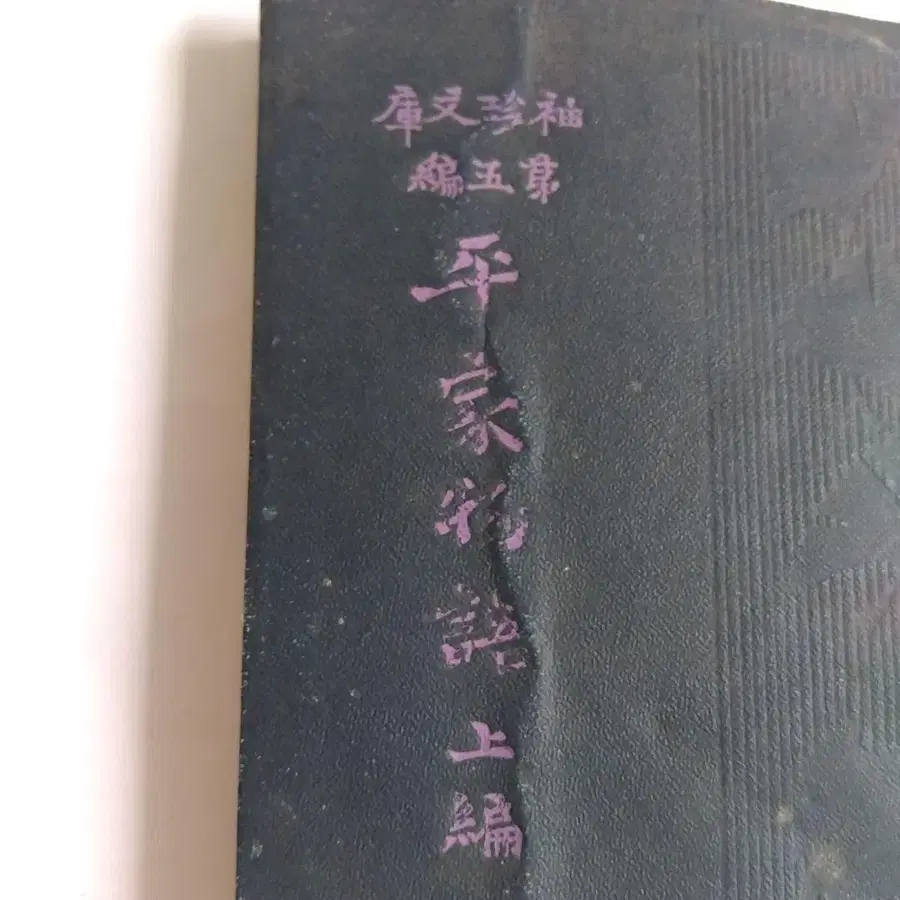 袖珍文庫
第五編
平家物語 上編